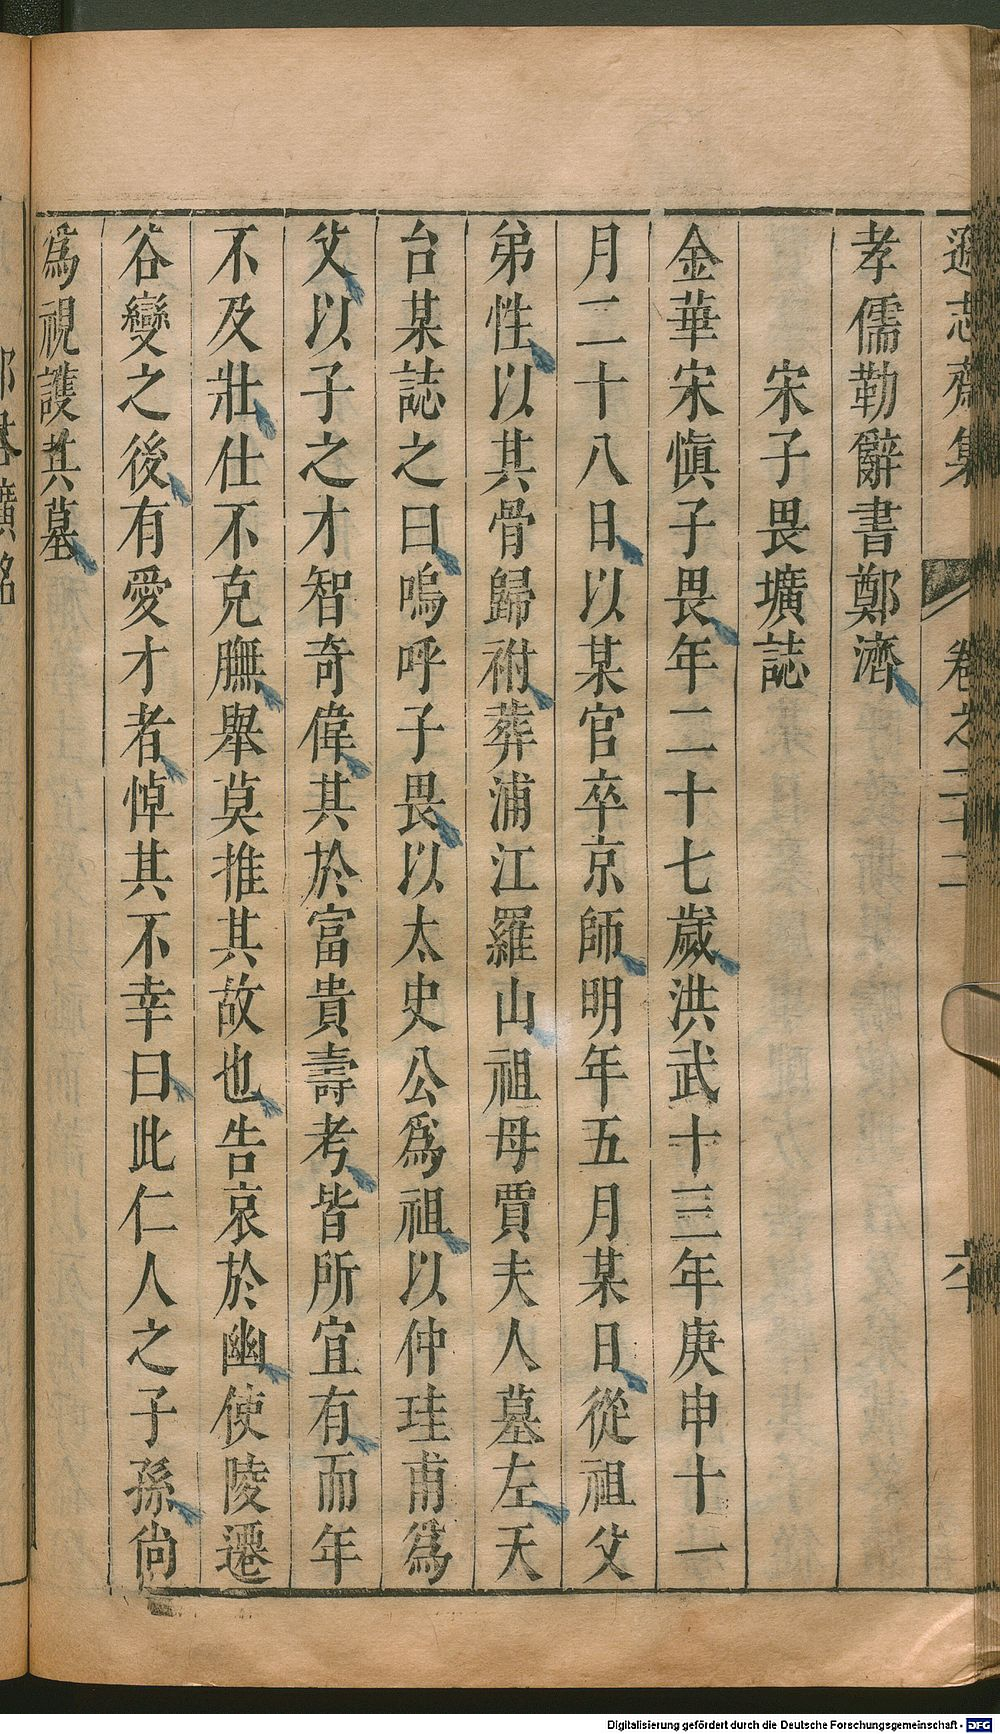 遜志齋集　卷之二十二
孝儒勒辭書鄭濟
宋子畏壙誌
金華宋愼子畏年二十七歲洪武十三年庚申十一
月二十八日以某官卒京師明年五月某日從祖父
弟性以其骨歸祔葬浦江羅山祖母賈夫人墓左天
台某誌之曰嗚呼子畏以太史公爲祖以仲珪甫爲
父以子之才智奇偉其於富貴壽考皆所宜有而年
不及壯仕不克膴舉莫推其故也告哀於幽使陵遷
谷變之後有愛才者悼其不幸曰此仁人之子孫尙
爲視護其墓
壙銘
Digitalisierung gefördert durch die Deutsche Forschungsgemeinschaft - DFG